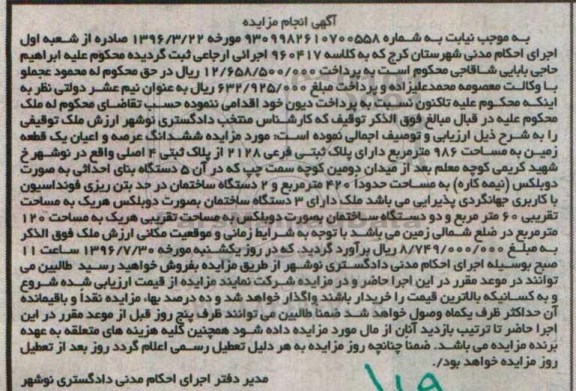 آگهی انجام مزایده
به موجب نیابت به شماره ۹۳۰۹۹۸۲۶۱۰۷۰۰۵۵۸ مورخه ۱۳۹۶/۳/۲۲ صادره از شعبه اول
اجرای احکام مدنی شهرستان کرج که به کلاسه ۹۶۰۴۱۷ اجرائی ارجاعی ثبت گردیده محکوم علیه ابراهیم
حاجی بابایی شاقاجی محکوم است به پرداخت ۱۲/۶۵۸/۵۰۰/۰۰۰ ریال در حق محکوم له محمود عجملو
با وکالت معصومه محمدعلیزاده و پرداخت مبلغ ۶۳۲/۹۲۵/۰۰۰ ریال به عنوان نیم عشر دولتی نظر به
اینکه محکوم علیه تاکنون نسبت به پرداخت دیون خود اقدامی ننموده حسب تقاضای محکوم له ملک
محکوم علیه در قبال مبالغ فوق الذکر توقیف که کارشناس منتخب دادگستری نوشهر ارزش ملک توقیفی
را به شرح ذیل ارزیابی و توصیف اجمالی نموده است: مورد مزایده ششدانگ عرصه و اعیان یک قطعه
زمین به مساحت ۹۸۶ مترمربع دارای پلاک ثبتی فرعی ۲۱۲۸ از پلاک ثبتی ۴ اصلی واقع در نوشهر خ
شهید کریمی کوچه معلم بعد از میدان دومین کوچه سمت چپ که در آن ۵ دستگاه بنای احداثی به صورت
دوبلکس (نیمه کاره) به مساحت حدوداً ۴۲۰ مترمربع و ۲ دستگاه ساختمان در حد بتن ریزی فونداسیون
با کاربری جهانگردی پذیرایی می باشد ملک دارای ۳ دستگاه ساختمان بصورت دوبلکس هریک به مساحت
تقریبی ۶۰ متر مربع و دو دستگاه ساختمان بصورت دوبلکس به مساحت تقریبی هریک به مساحت ۱۲۰
مترمربع در ضلع شمالی زمین می باشد با توجه به شرایط زمانی و موقعیت مکانی ارزش ملک فوق الذکر
به مبلغ ۸/۷۴۹/۰۰۰/۰۰۰ ریال برآورد گردید. که در روز یکشنبه مورخه ۱۳۹۶/۷/۳۰ ساعت ۱۱
صبح بوسیله اجرای احکام مدنی دادگستری نوشهر از طریق مزایده بفروش خواهید رسید طالبین می
توانند در موعد مقرر در این اجرا حاضر و در مزایده شرکت نمایند مزایده از قیمت ارزیابی شده شروع
و به کسانیکه بالاترین قیمت را خریدار باشند واگذار خواهد شد و ده درصد بهاء مزایده نقداً و باقیمانده
آن حداکثر ظرف یکماه وصول خواهد شد ضمنا طالبین می توانند ظرف پنج روز قبل از موعد مقرر در این
اجرا حاضر تا ترتیب بازدید آنان از مال مورد مزایده داده شود همچنین کلیه هزینه های متعلقه به عهده
برنده مزایده می باشد. ضمنا چنانچه روز مزایده به هر دلیل تعطیل رسمی اعلام گردد روز بعد از تعطیل
روز مزایده خواهد بود./.
مدیر دفتر اجرای احکام مدنی دادگستری نوشهر